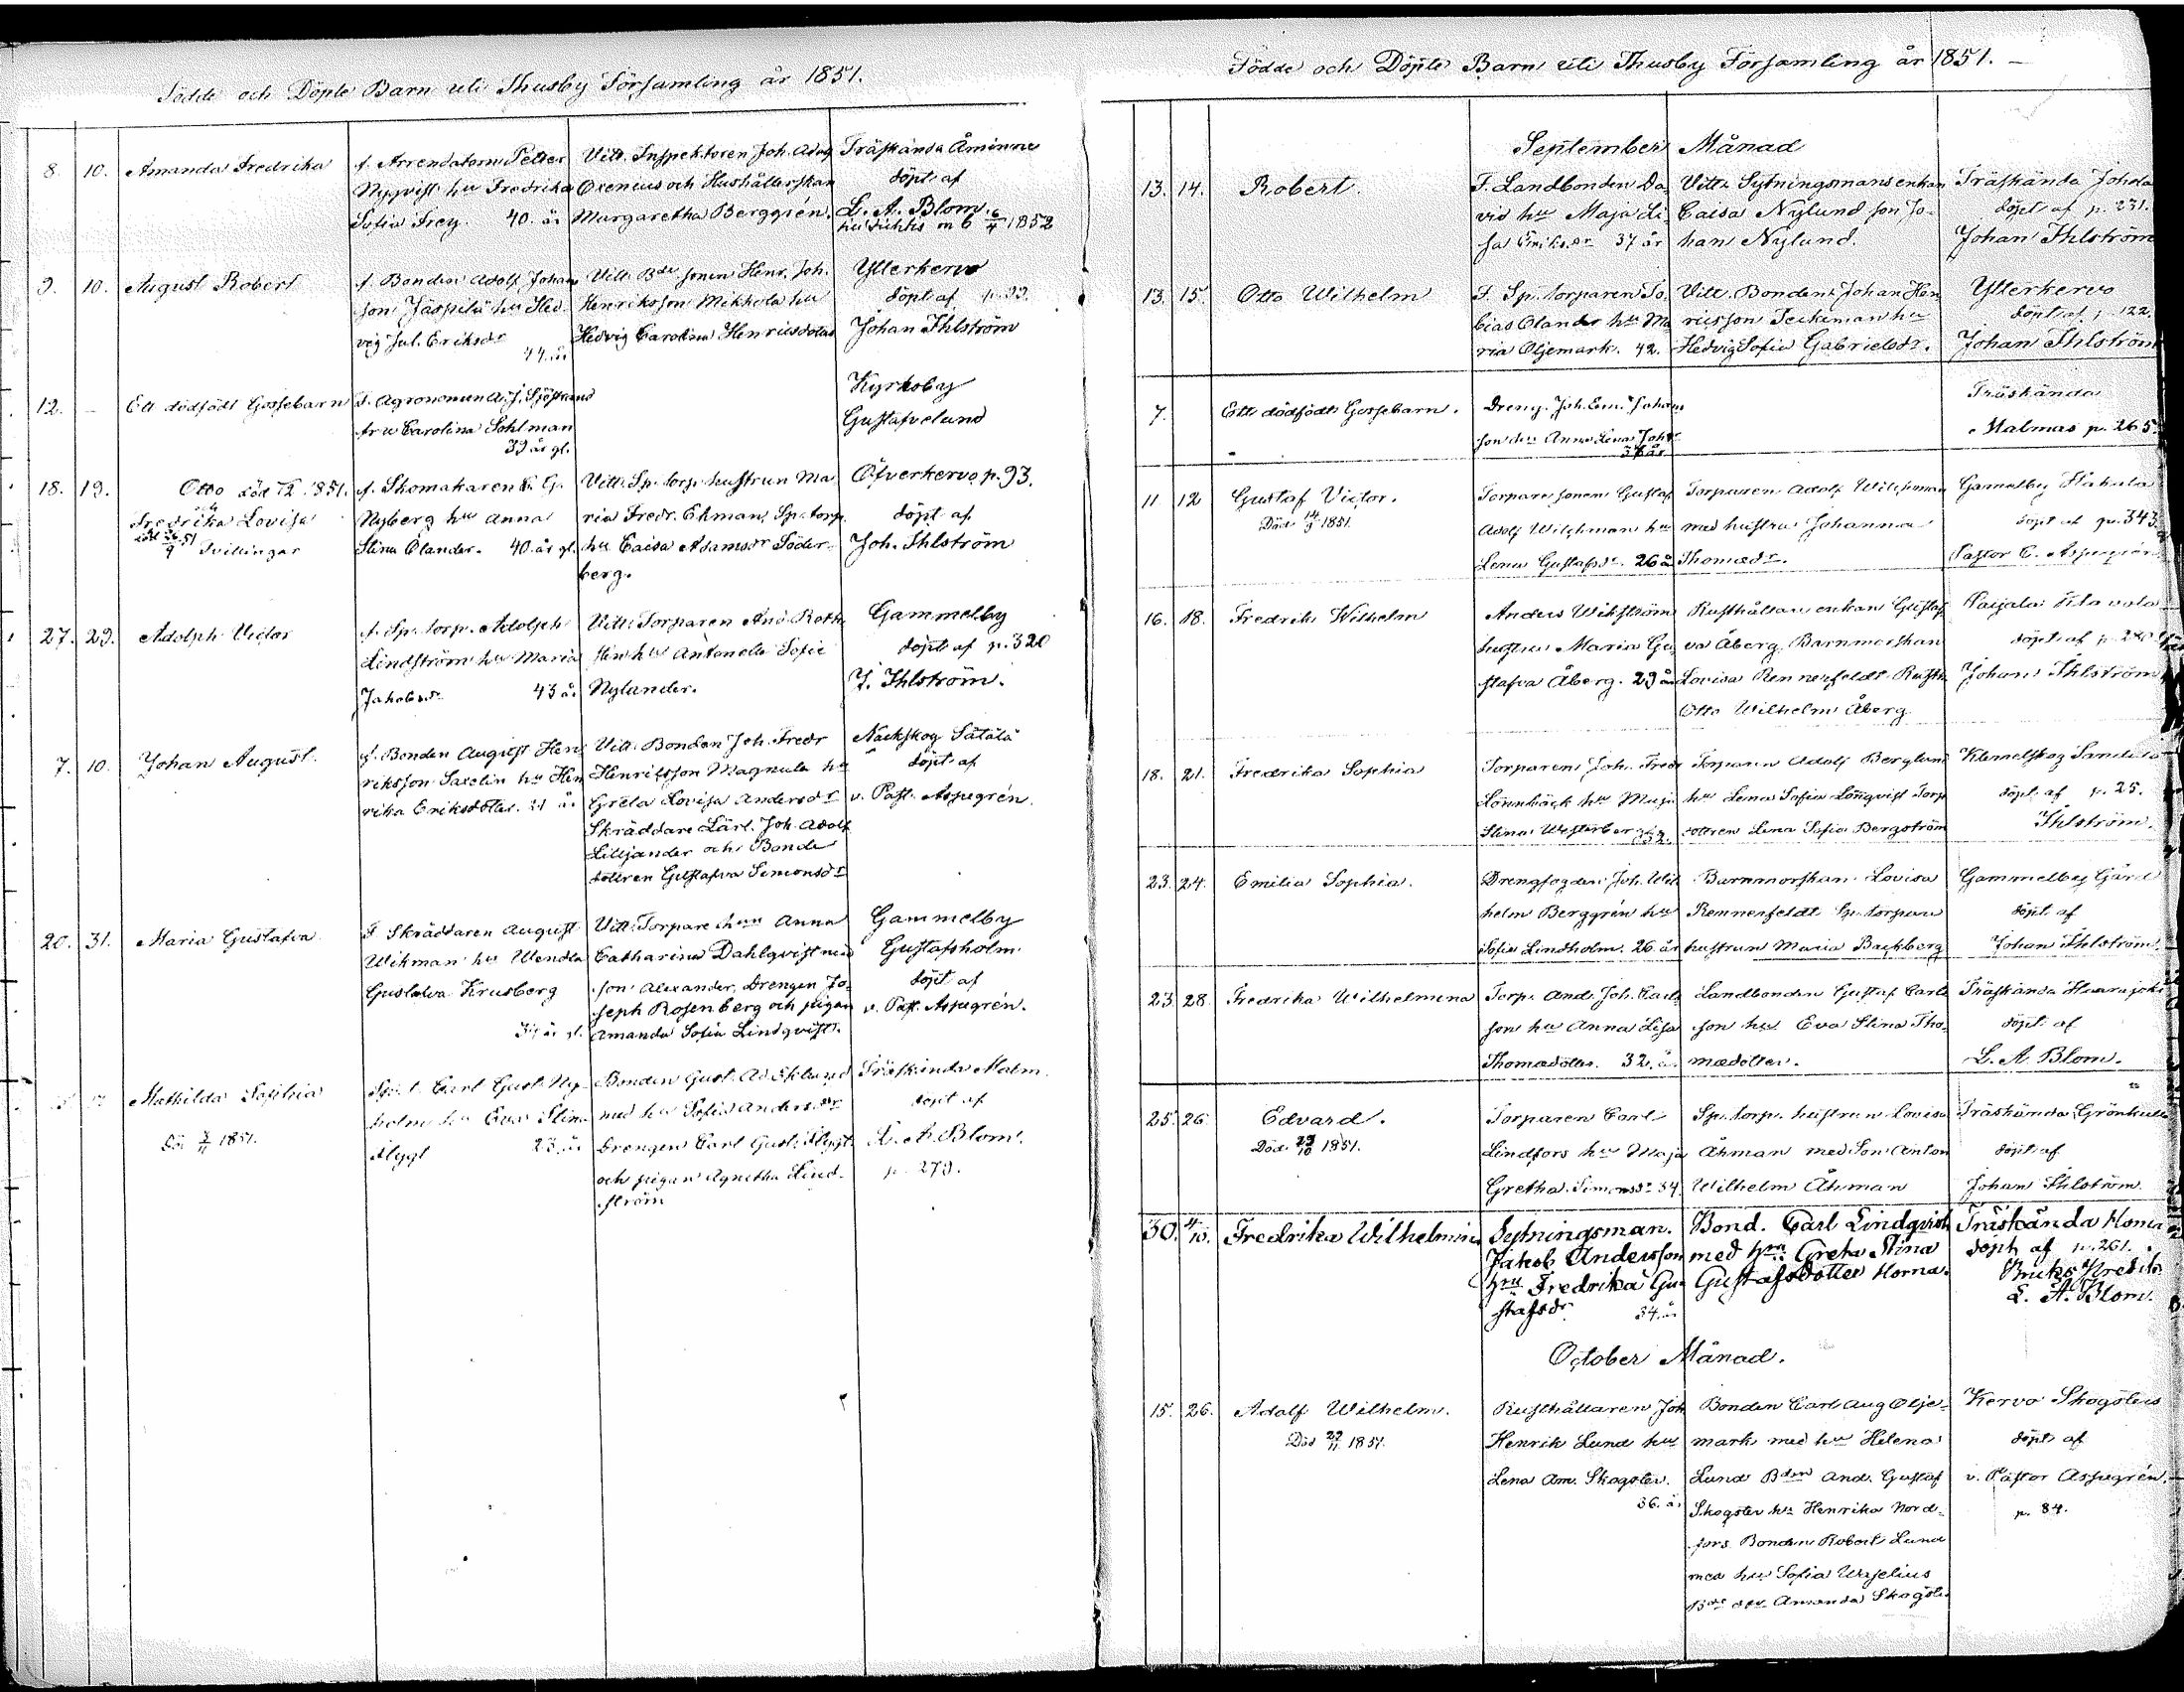 Födde och Döpte Barn uti Thusby Församling år 1851.
8. 10. Amanda Fredrika
f. Arrendatorn Petter
Nyqvist hu Fredrika
Sofia Frey. 40. år
Vitt. Inspektoren Joh. Adog
Oxenius och Hushållerskan
Margaretha Berggrén.
Träskända Åminne
döpt af
L. A. Blom.
6/4 1852
9. 10. August Robert
f. Bonden Adolf Johans
son Jäspilä hu Hed-
vig Jul. Eriksdr
44. år
Vitt. Bde sonen Henr. Joh.
Henriksson Mikkola hu
Hedvig Carolina Henriksdotter
Ytterkervo
döpt af p. 99.
Johan Ihlström
12. – Ett dödfödt Gossebarn
F. Agronomen A. J. Sjöstrand
fru Carolina Sohlman
39 år gl.
Kyrkoby
Gustafvelund
18. 19. Otto död 1851.
Fredrika Lovisa
Tvillingar
f. Skomakaren K. G.
Nyberg hu Anna
Stina Olander. 40. år gl.
Vitt. Sp. torp. hustrun Ma-
ria Fredr. Ekman, Sp. torp.
hu Caisa Adamsdr Söder-
berg.
Öfverkervo p. 93.
döpt af
Joh. Ihlström
27. 29. Adolph Victor
f. Sp. torp. Adolph
Lindström hu Maria
Jakobsdr 43 år
Vitt. Torparen And. Roth
sten hu Antonetta Sofie
Nylander.
Gammelby
döpt af p. 320
J. Ihlström.
7. 10. Johan August.
f. Bonden August Hen
riksson Saxelin hu Hen
rika Eriksdotter. 31 år
Vitt. Bonden Joh. Fredr
Henriksson Magnula hu
Greta Lovisa Andersdr
Skräddare Lärl. Joh. Adolf
Lilljander och Bonde
dottren Gustafva Simonsdr
Nackskog Sätälä
döpt af
v. Past. Aspegrén.
20. 31. Maria Gustafva
F. Skräddaren August
Wikman hu Wendla
Gustafva Krusberg
Vitt. Torpare hun Anna
Catharina Dahlqvist med
son Alexander, Drengen Jo-
seph Rosenberg och pigan
Amanda Sofia Lindqvist.
Gammelby
Gustafsholm
döpt af
v. Past. Aspegrén.
Mathilda Sophia
Död 3/11 1851.
Carl Gust. Ny-
holm hu Eva Stina
Flygt 23. år
Bonden Gust. Ad. Eklund
med hu Sofia Andersdr
Drengen Carl Gust. Flygt
och pigan Agnetha Lind-
ström
Träskända Malm.
döpt af
L. A. Blom.
p. 279.
Födde och Döpte Barn uti Thusby Församling år 1851. –
September Månad
13. 14. Robert.
F. Landbonden Da-
vid hu Maja Li-
sa Eriksdr 37 år
Vittn. Sytningsmansenkan
Caisa Nylund son Jo-
han Nylund.
Träskända Johola
döpt af p. 231.
Johan Ihlström
13. 15. Otto Wilhelm
F. Sp. torparen To-
bias Olander hu Ma
ria Oljemark. 42.
Vitt. Bonden Johan Hen
riksson Teckiman hu
Hedvig Sofia Gabrielsdr.
Ytterkervo
döpt af p. 122.
Johan Ihlström
7. Ett dödfödt Gossebarn.
Dreng. Joh. Em. Johans
son hu Anna Lena Johdr
Träskända
Malmas p. 265
11 12 Gustaf Victor.
Död 14/9 1851.
Torpare sonen Gustaf
Adolf Wilchman hu
Lena Gustafsdr. 26 år
Torparen Adolf Wilchman
med hustru Johanna
Thomædr.
Gamelby Hahula
döpt af p. 343
Pastor C. Aspegrén
16. 18. Fredrik Wilhelm
Anders Wikström
hustru Maria Gu
stafva Åberg. 29 år
Rusthållare enkan Gustaf
va Åberg, Barnmorskan
Lovisa Rennerfeldt Rusth
Otto Wilhelm Åberg
Paijala Klavola
döpt af
Johan Ihlström
18. 21. Fredrika Sophia
Torparen Joh. Fredr
Lönnbäck hu Maja
Stina Westerberg 32.
Torparen Adolf Berglund
hu Lena Sofia Lönqvist Torp
dottren Lena Sofia Bergström
Klemetskog Sandula
döpt af p. 25.
Ihlström.
23. 24. Emilia Sophia.
Drengfogden Joh. Wil
helm Berggrén hu
Sofia Lindholm. 26 år
Barnmorskan Lovisa
Rennerfeldt Sp. torpare
hustrun Maria Backberg
Gammelby Gård
döpt af
Johan Ihlström.
23 28. Fredrika Wilhelmina
Torp. And. Joh. Carls
son hu Anna Lisa
Thomædotter. 32. år
Landbonden Gustaf Carls
son hu Eva Stina Tho-
mædotter.
Träskända Haarajoki
döpt af
L. A. Blom.
25. 26. Edvard.
Död 29/10 1851.
Torparen Carl
Lindfors hu Maja
Gretha Simonsdr 34.
Sp. torp. hustrun Lovisa
Åhman med Son Anton
Wilhelm Åhman
Träskända Grönkulla
döpt af
Johan Ihlström.
30. 4/10. Fredrika Wilhelmina
Sytningsman.
Jakob Andersson
hru Fredrika Gu
stafsdr 34. år
Bond. Carl Lindqvist
med hru Greta Stina
Gustafsdotter Horna.
Träskända Horna
döpt af p. 261.
Bruks Predik.
L. A. Blom.
October Månad.
15. 26. Adolf Wilhelm.
Död 29/11 1851.
Rusthållaren Joh
Henrik Lund hu
Lena Am. Skogster.
36. år
Bonden Carl Aug Olje-
mark med hu Helena
Lund Bden And. Gustaf
Skogster hu Henrika Nord-
fors Bonden Robert Lund
med hu Sofia Waselius
Bde dtr Amanda Skogster
Kervo Skogsters
döpt af
v. Pastor Aspegrén.
p. 84.